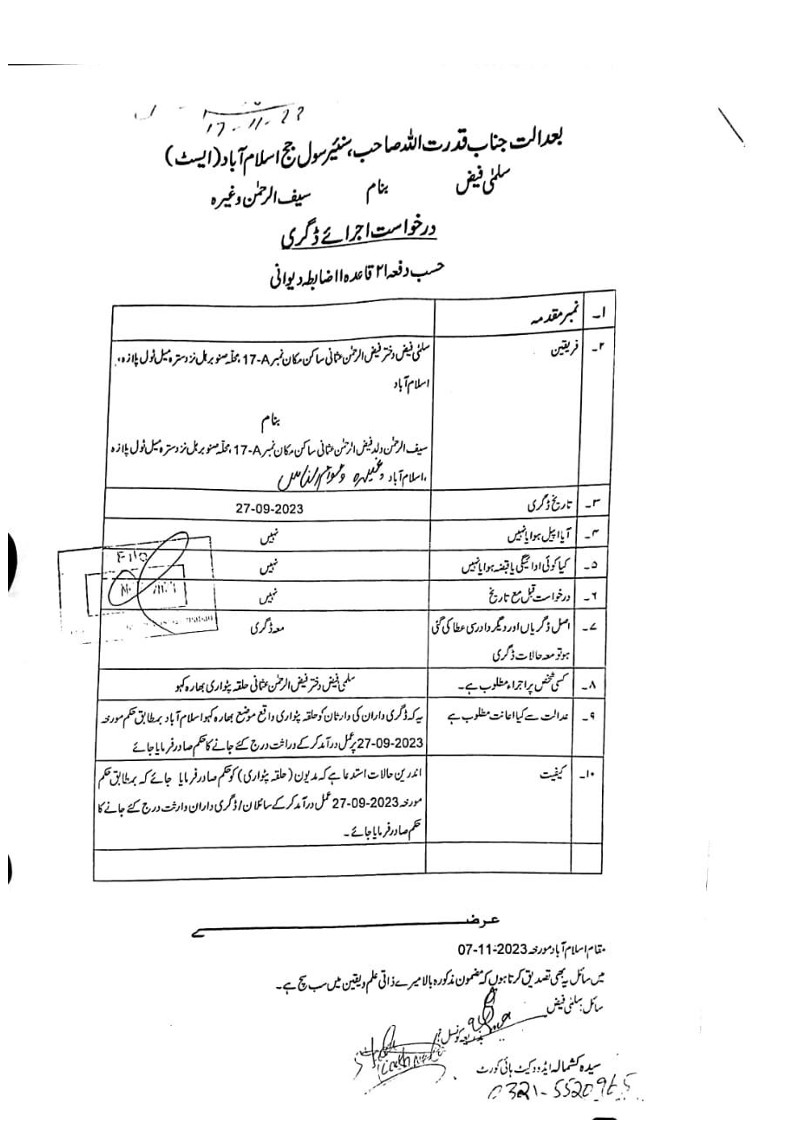 17-11-23
بعدالت جناب قدرت اللہ صاحب، سنیئر سول جج اسلام آباد (ایسٹ)
سلمٰی فیض بنام سیف الرحمٰن وغیرہ
درخواست اجرائے ڈگری
حسب دفعہ ۲۱ قاعدہ ۱۱ ضابطہ دیوانی
۱۔ نمبر مقدمہ
۲۔ فریقین
سلمٰی فیض دختر فیض الرحمٰن عثمانی ساکن مکان نمبر 17-A، محلہ صنوبر ہل نزد سترہ میل ٹول پلازہ،
اسلام آباد
بنام
سیف الرحمٰن ولد فیض الرحمٰن عثمانی ساکن مکان نمبر 17-A، محلہ صنوبر ہل نزد سترہ میل ٹول پلازہ
،اسلام آباد وغیرہ و عوام الناس
۳۔ تاریخ ڈگری 27-09-2023
۴۔ آیا اپیل ہوا یا نہیں نہیں
۵۔ کیا کوئی ادائیگی یا قبضہ ہوا یا نہیں نہیں
۶۔ درخواست قبل مع تاریخ نہیں
۷۔ اصل ڈگریاں اور دیگر دادرسی عطا کی گئی معہ ڈگری
ہو تو معہ حالات ڈگری
۸۔ کسی شخص پر اجراء مطلوب ہے۔ سلمٰی فیض دختر فیض الرحمٰن عثمانی حلقہ پٹواری بھارہ کہو
۹۔ عدالت سے کیا اعانت مطلوب ہے
یہ کہ ڈگری داران کی وارثان کو حلقہ پٹواری واقع موضع بھارہ کہو اسلام آباد بمطابق حکم مورخہ
27-09-2023 پر عمل درآمد کر کے وراثت درج کئے جانے کا حکم صادر فرمایا جائے
۱۰۔ کیفیت
اندرین حالات استدعا ہے کہ مدیون (حلقہ پٹواری) کو حکم صادر فرمایا جائے کہ بمطابق حکم
مورخہ 27-09-2023 عمل درآمد کر کے سائلان/ڈگری داران وارثت درج کئے جانے کا
حکم صادر فرمایا جائے۔
عرضے
مقام اسلام آباد مورخہ 07-11-2023
میں سائل یہ بھی تصدیق کرتا ہوں کہ مضمون مذکورہ بالا میرے ذاتی علم و یقین میں سب سچ ہے۔
سائل: سلمٰی فیض
بذریعہ کونسل:
سیدہ کشمالہ ایڈووکیٹ ہائی کورٹ
0321-5520965